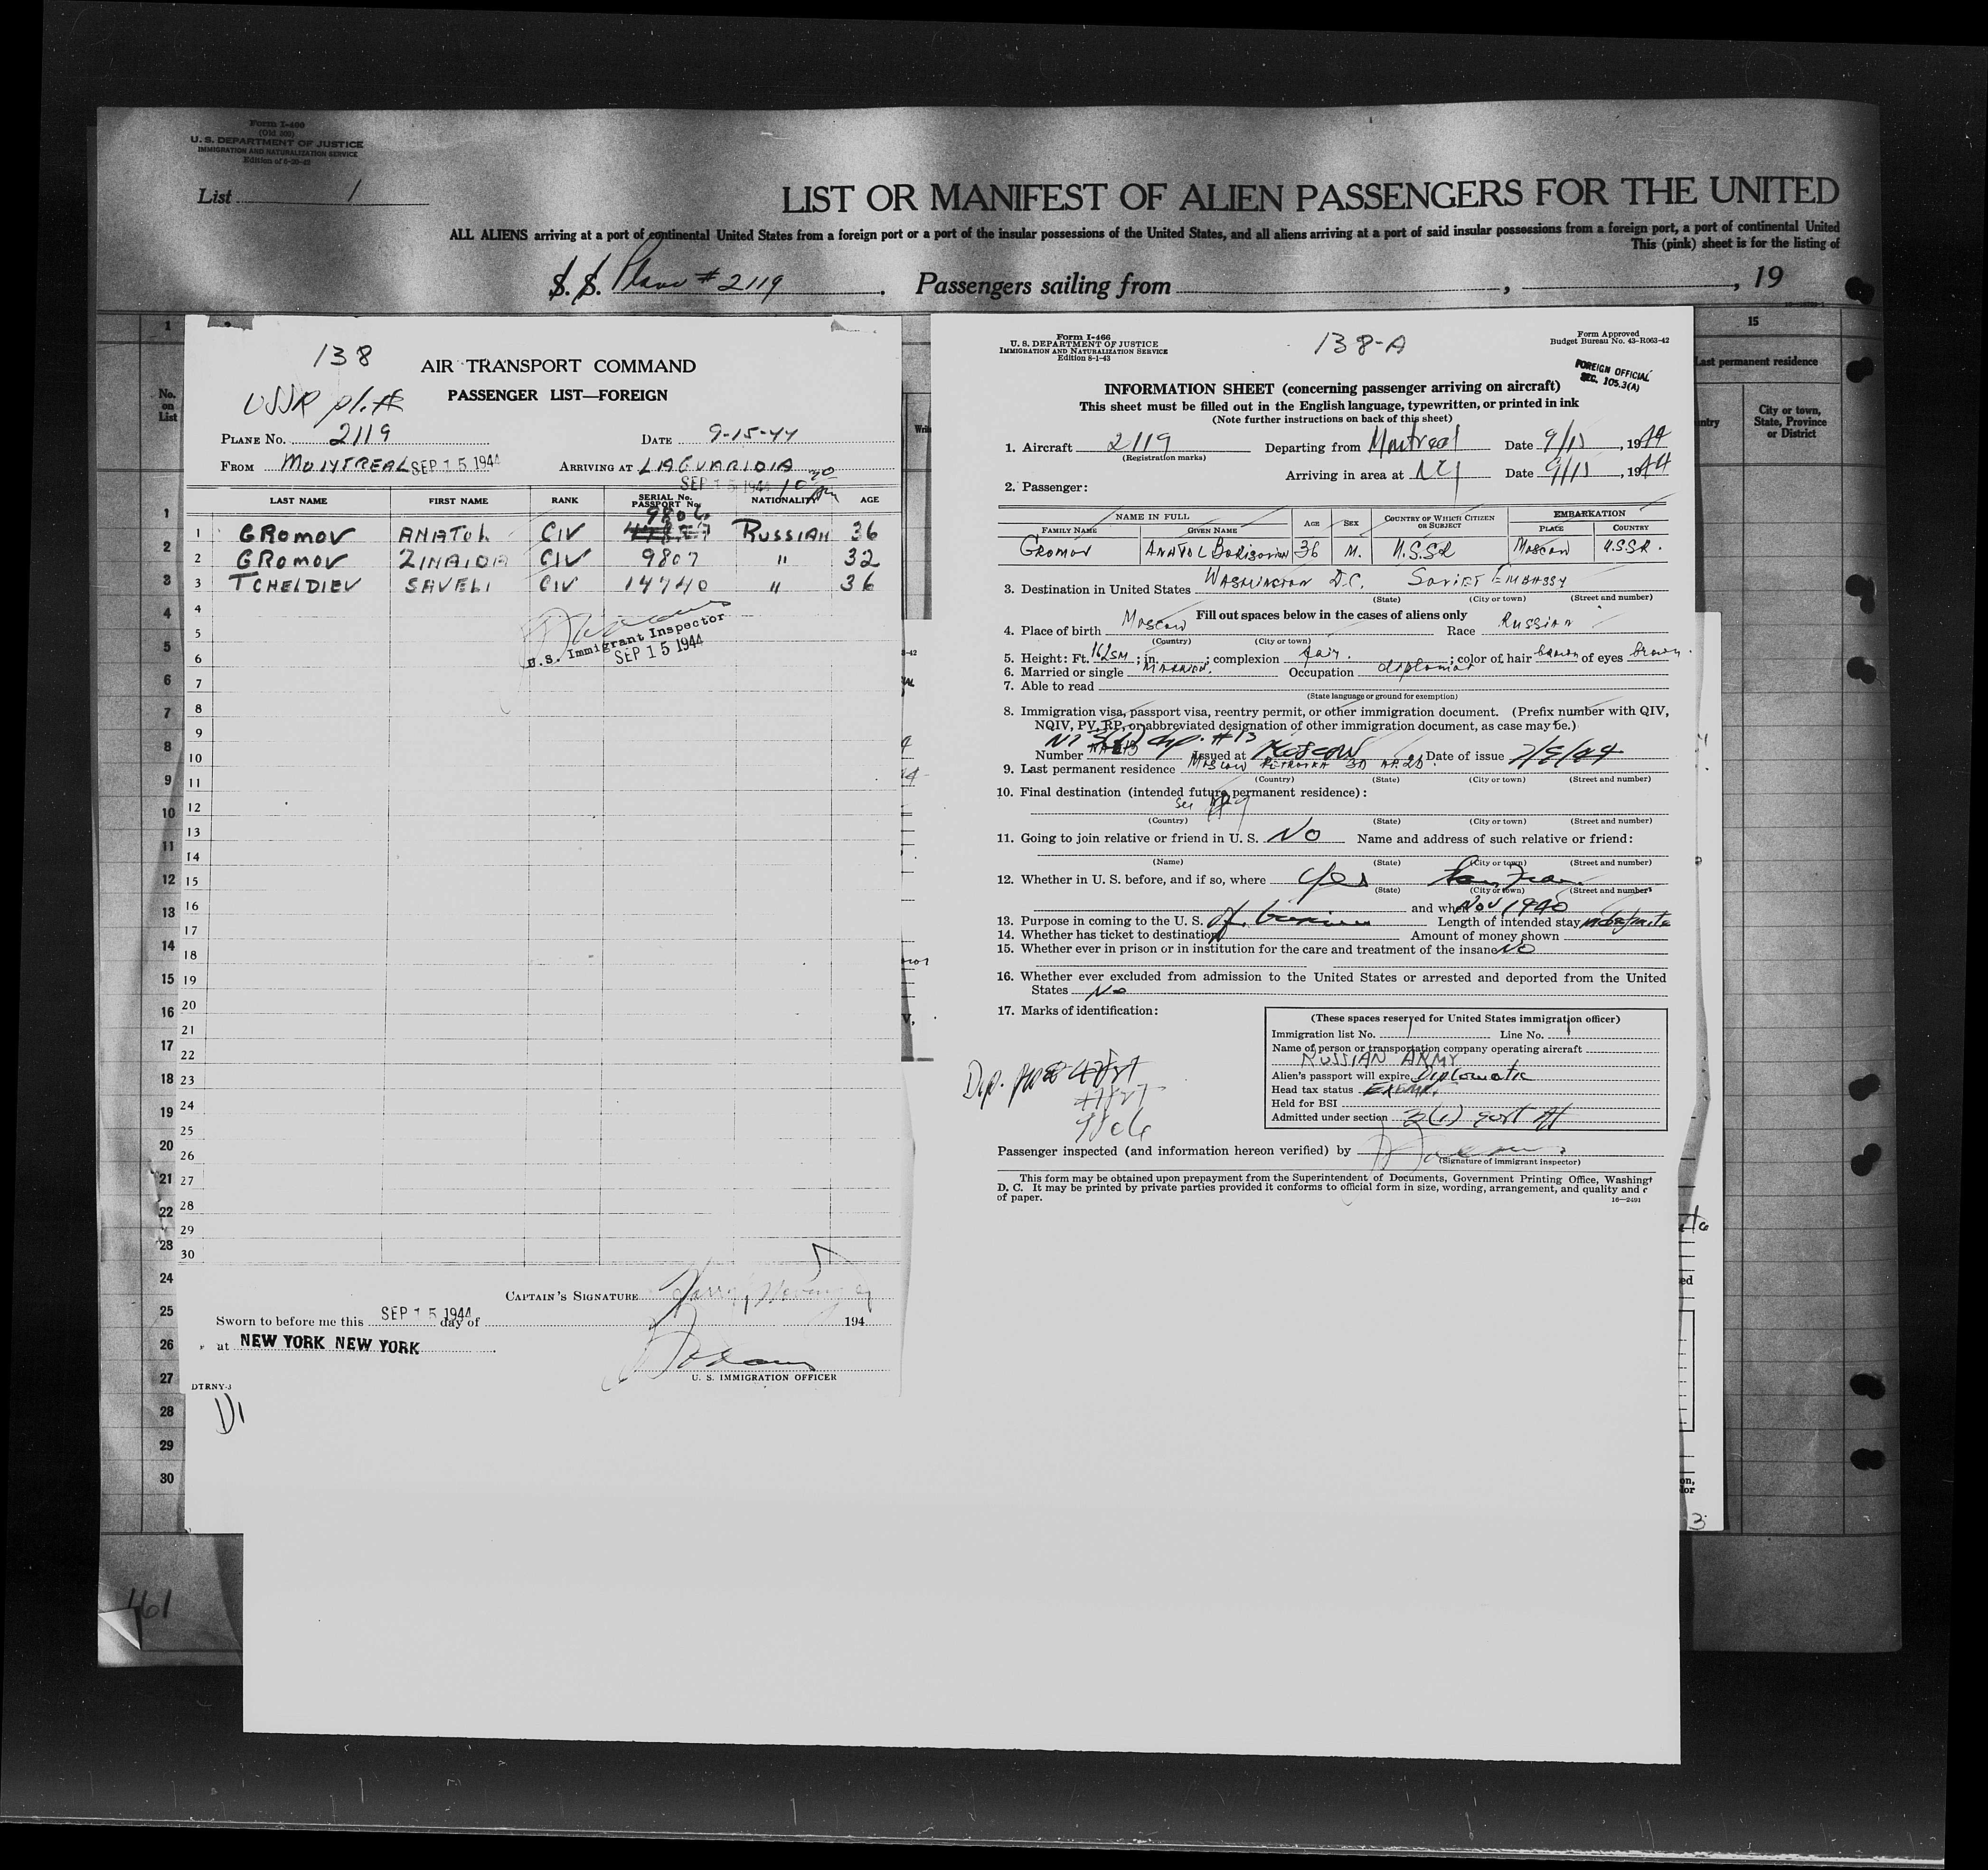 Form I-400
(Old 500)
U. S. DEPARTMENT OF JUSTICE
IMMIGRATION AND NATURALIZATION SERVICE
List 1
LIST OR MANIFEST OF ALIEN PASSENGERS FOR THE UNITED
ALL ALIENS arriving at a port of continental United States from a foreign port or a port of the insular possessions of the United States, and all aliens arriving at a port of said insular possessions from a foreign port, a port of continental United
This (pink) sheet is for the listing of
S. S. Plane # 2119. Passengers sailing from , , 19
138
AIR TRANSPORT COMMAND
USSR
PASSENGER LIST—FOREIGN
PLANE NO. 2119 DATE 9-15-44
FROM MONTREAL SEP 15 1944 ARRIVING AT LAGUARIDIA
SEP 15 1944
LAST NAME FIRST NAME RANK SERIAL No. PASSPORT No. NATIONALITY AGE
9806
1 GROMOV ANATOL CIV RUSSIAN 36
2 GROMOV ZINAIDA CIV 9807 " 32
3 TCHELDIEV SAVELI CIV 14740 " 36
4
5
U.S. Immigrant Inspector
6 SEP 15 1944
7
8
9
10
11
12
13
14
15
16
17
18
19
20
21
22
23
24
25
26
27
28
29
30
CAPTAIN'S SIGNATURE
Sworn to before me this SEP 15 1944 day of 194
at NEW YORK NEW YORK
U. S. IMMIGRATION OFFICER
DTRNY-3
Form I-466
U. S. DEPARTMENT OF JUSTICE
IMMIGRATION AND NATURALIZATION SERVICE
Edition 8-1-43
138-A
Form Approved
Budget Bureau No. 43-R063-42
FOREIGN OFFICIAL
SEC. 105.3(A)
INFORMATION SHEET (concerning passenger arriving on aircraft)
This sheet must be filled out in the English language, typewritten, or printed in ink
(Note further instructions on back of this sheet)
1. Aircraft 2119 Departing from Montreal Date 9/15, 1944
(Registration marks)
Arriving in area at NY Date 9/15, 1944
2. Passenger:
NAME IN FULL AGE SEX COUNTRY OF WHICH CITIZEN OR SUBJECT EMBARKATION
FAMILY NAME GIVEN NAME PLACE COUNTRY
GROMOV ANATOL BORISOVICH 36 M. U.S.S.R MOSCOW U.S.S.R.
3. Destination in United States WASHINGTON D.C. SOVIET EMBASSY
(State) (City or town) (Street and number)
Fill out spaces below in the cases of aliens only
4. Place of birth Moscow Race Russian
(Country) (City or town)
5. Height: Ft. 162 SM; in. ; complexion fair. ; color of hair brown of eyes brown.
6. Married or single MARRIED. Occupation diplomat
7. Able to read
(State language or ground for exemption)
8. Immigration visa, passport visa, reentry permit, or other immigration document. (Prefix number with QIV,
NQIV, PV, RP, or abbreviated designation of other immigration document, as case may be.)
Number Issued at MOSCOW Date of issue
9. Last permanent residence MOSCOW PETROVKA
(Country) (State) (City or town) (Street and number)
10. Final destination (intended future permanent residence):
(Country) (State) (City or town) (Street and number)
11. Going to join relative or friend in U. S. NO Name and address of such relative or friend:
(Name) (State) (City or town) (Street and number)
12. Whether in U. S. before, and if so, where yes San Fran
(State) (City or town) (Street and number)
and when Nov 1940
13. Purpose in coming to the U. S. Length of intended stay indefinite
14. Whether has ticket to destination Amount of money shown
15. Whether ever in prison or in institution for the care and treatment of the insane NO
16. Whether ever excluded from admission to the United States or arrested and deported from the United
States No
17. Marks of identification:
(These spaces reserved for United States immigration officer)
Immigration list No. 1 Line No. 1
Name of person or transportation company operating aircraft
RUSSIAN ARMY
Alien's passport will expire Diplomatic
Head tax status EXEMPT
Held for BSI
Admitted under section 3(1) govt off
9806
Passenger inspected (and information hereon verified) by
(Signature of immigrant inspector)
This form may be obtained upon prepayment from the Superintendent of Documents, Government Printing Office, Washingt
D. C. It may be printed by private parties provided it conforms to official form in size, wording, arrangement, and quality and c
of paper.
16—2491
No. on List
1
2
3
4
5
6
7
8
9
10
11
12
13
14
15
16
17
18
19
20
21
22
23
24
25
26
27
28
29
30
15
Last permanent residence
City or town, State, Province or District
461